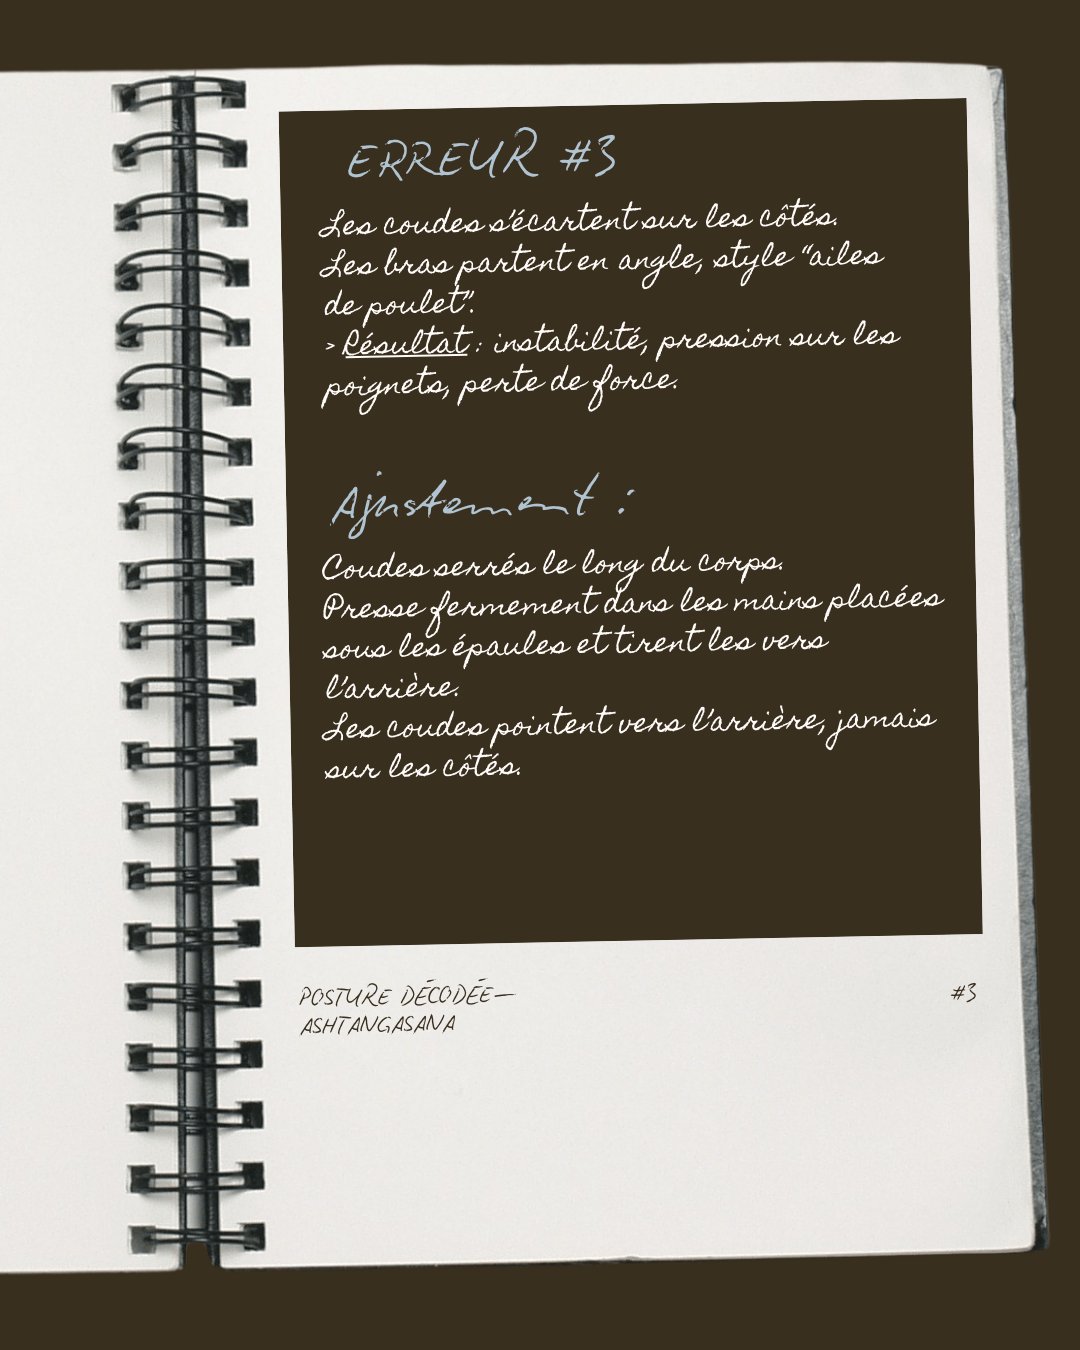 ERREUR #3
Les coudes s'écartent sur les côtés.
Les bras partent en angle, style “ailes
de poulet”.
> Résultat : instabilité, pression sur les
poignets, perte de force.
Ajustement :
Coudes serrés le long du corps.
Presse fermement dans les mains placées
sous les épaules et tirent les vers
l'arrière.
Les coudes pointent vers l'arrière, jamais
sur les côtés.
POSTURE DÉCODÉE—
ASHTANGASANA
#3